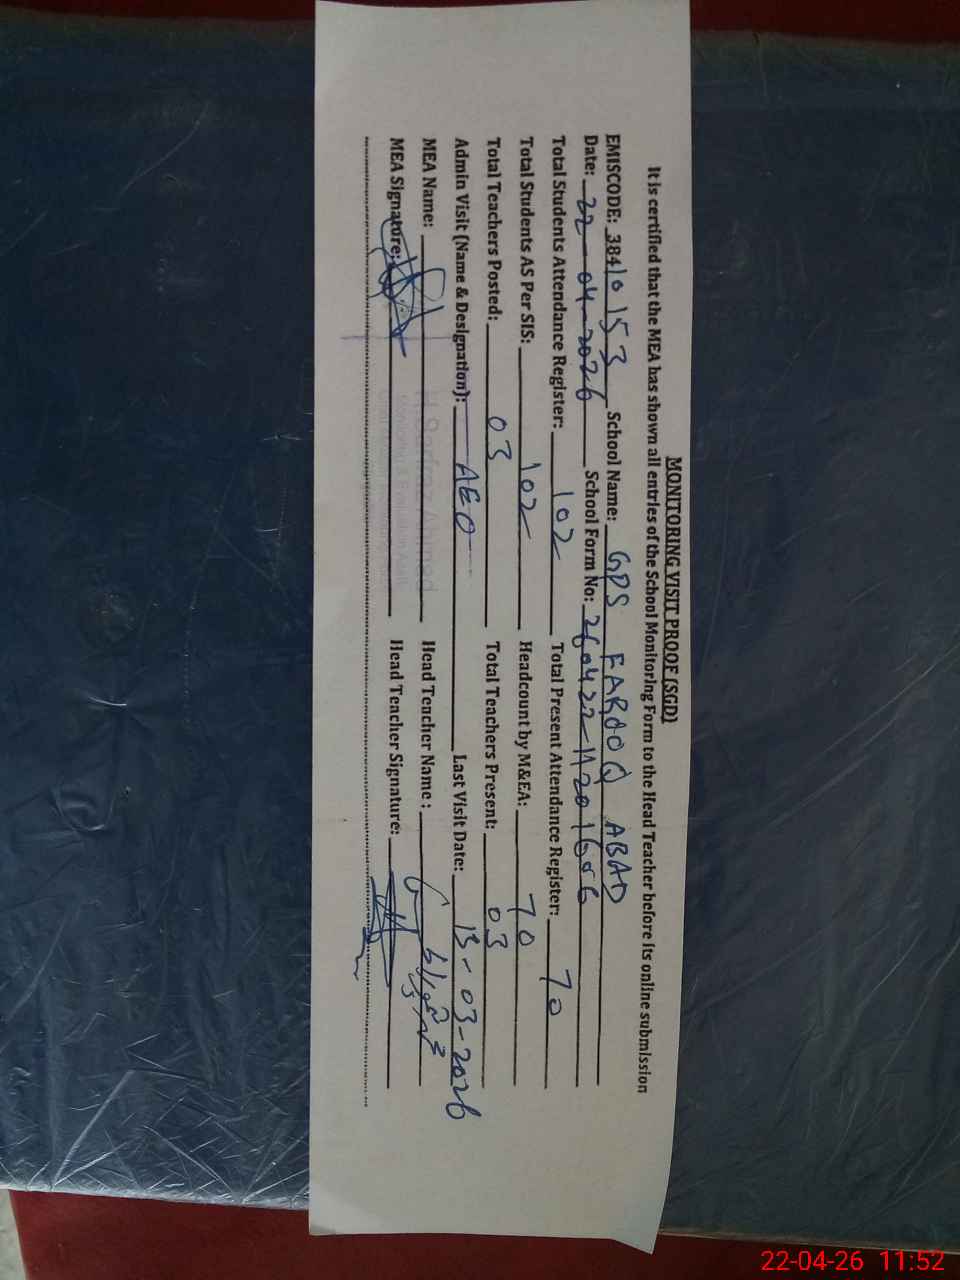 MONITORING VISIT PROOF (SGD)
It is certified that the MEA has shown all entries of the School Monitoring Form to the Head Teacher before its online submission
EMISCODE: 38410153 School Name: GPS FAROOQ ABAD
Date: 22-04-2026 School Form No: 260422-11201606
Total Students Attendance Register: 102 Total Present Attendance Register: 70
Total Students AS Per SIS: 102 Headcount by M&EA: 70
Total Teachers Posted: 03 Total Teachers Present: 03
Admin Visit (Name & Designation): AEO Last Visit Date: 13-03-2026
MEA Name: Head Teacher Name :
MEA Signature: Head Teacher Signature:
22-04-26 11:52